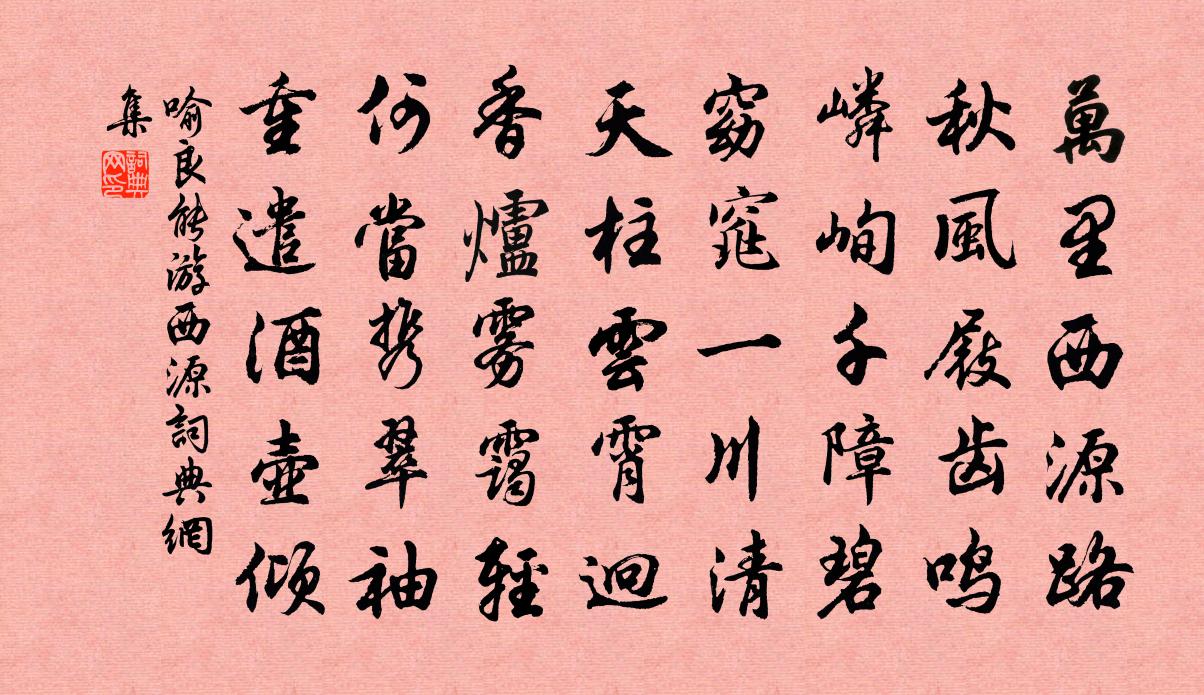 萬里西源路
秋風屐齒鳴
嶙峋千障碧
窈窕一川清
天柱雲霄迥
香爐雾靄輕
何當携翠袖
重遣酒壺傾
喻良能游西源詞典網
集
詞典网印